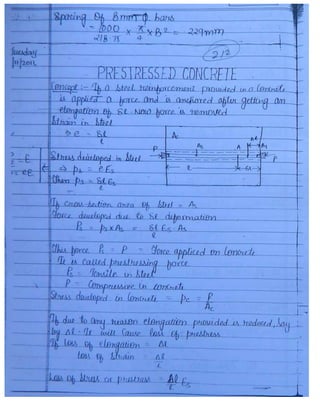 Spacing Of 8mm Φ bars
= 1000/218.75 × π/4 × 8² = 229mm
212
Tuesday
PRESTRESSED CONCRETE
Concept :- If a steel reinforcement provided in a concrete
is applied a force and is anchored after getting an
elongation of δl. Now force is removed
Strain in Steel
⇒ e = δl/l
Stress developed in Steel
⇒ ps = e Es
Then ps = δl Es/l
Ac
As
A
Δl
P
P
l
δl
If cross-section area of Steel = As
Force developed due to δl deformation
Ps = ps × As = δl/l Es As
This force Ps = P = Force applied on Concrete
It is called prestressing force
Ps = Tensile in Steel
P = Compressive in concrete
Stress developed in Concrete = pc = P/Ac
If due to any reason elongation provided is reduced, say
by Δl. It will cause loss of prestress
If loss of elongation = Δl
loss of strain = Δl/l
Loss of Stress in prestress = Δl/l Es